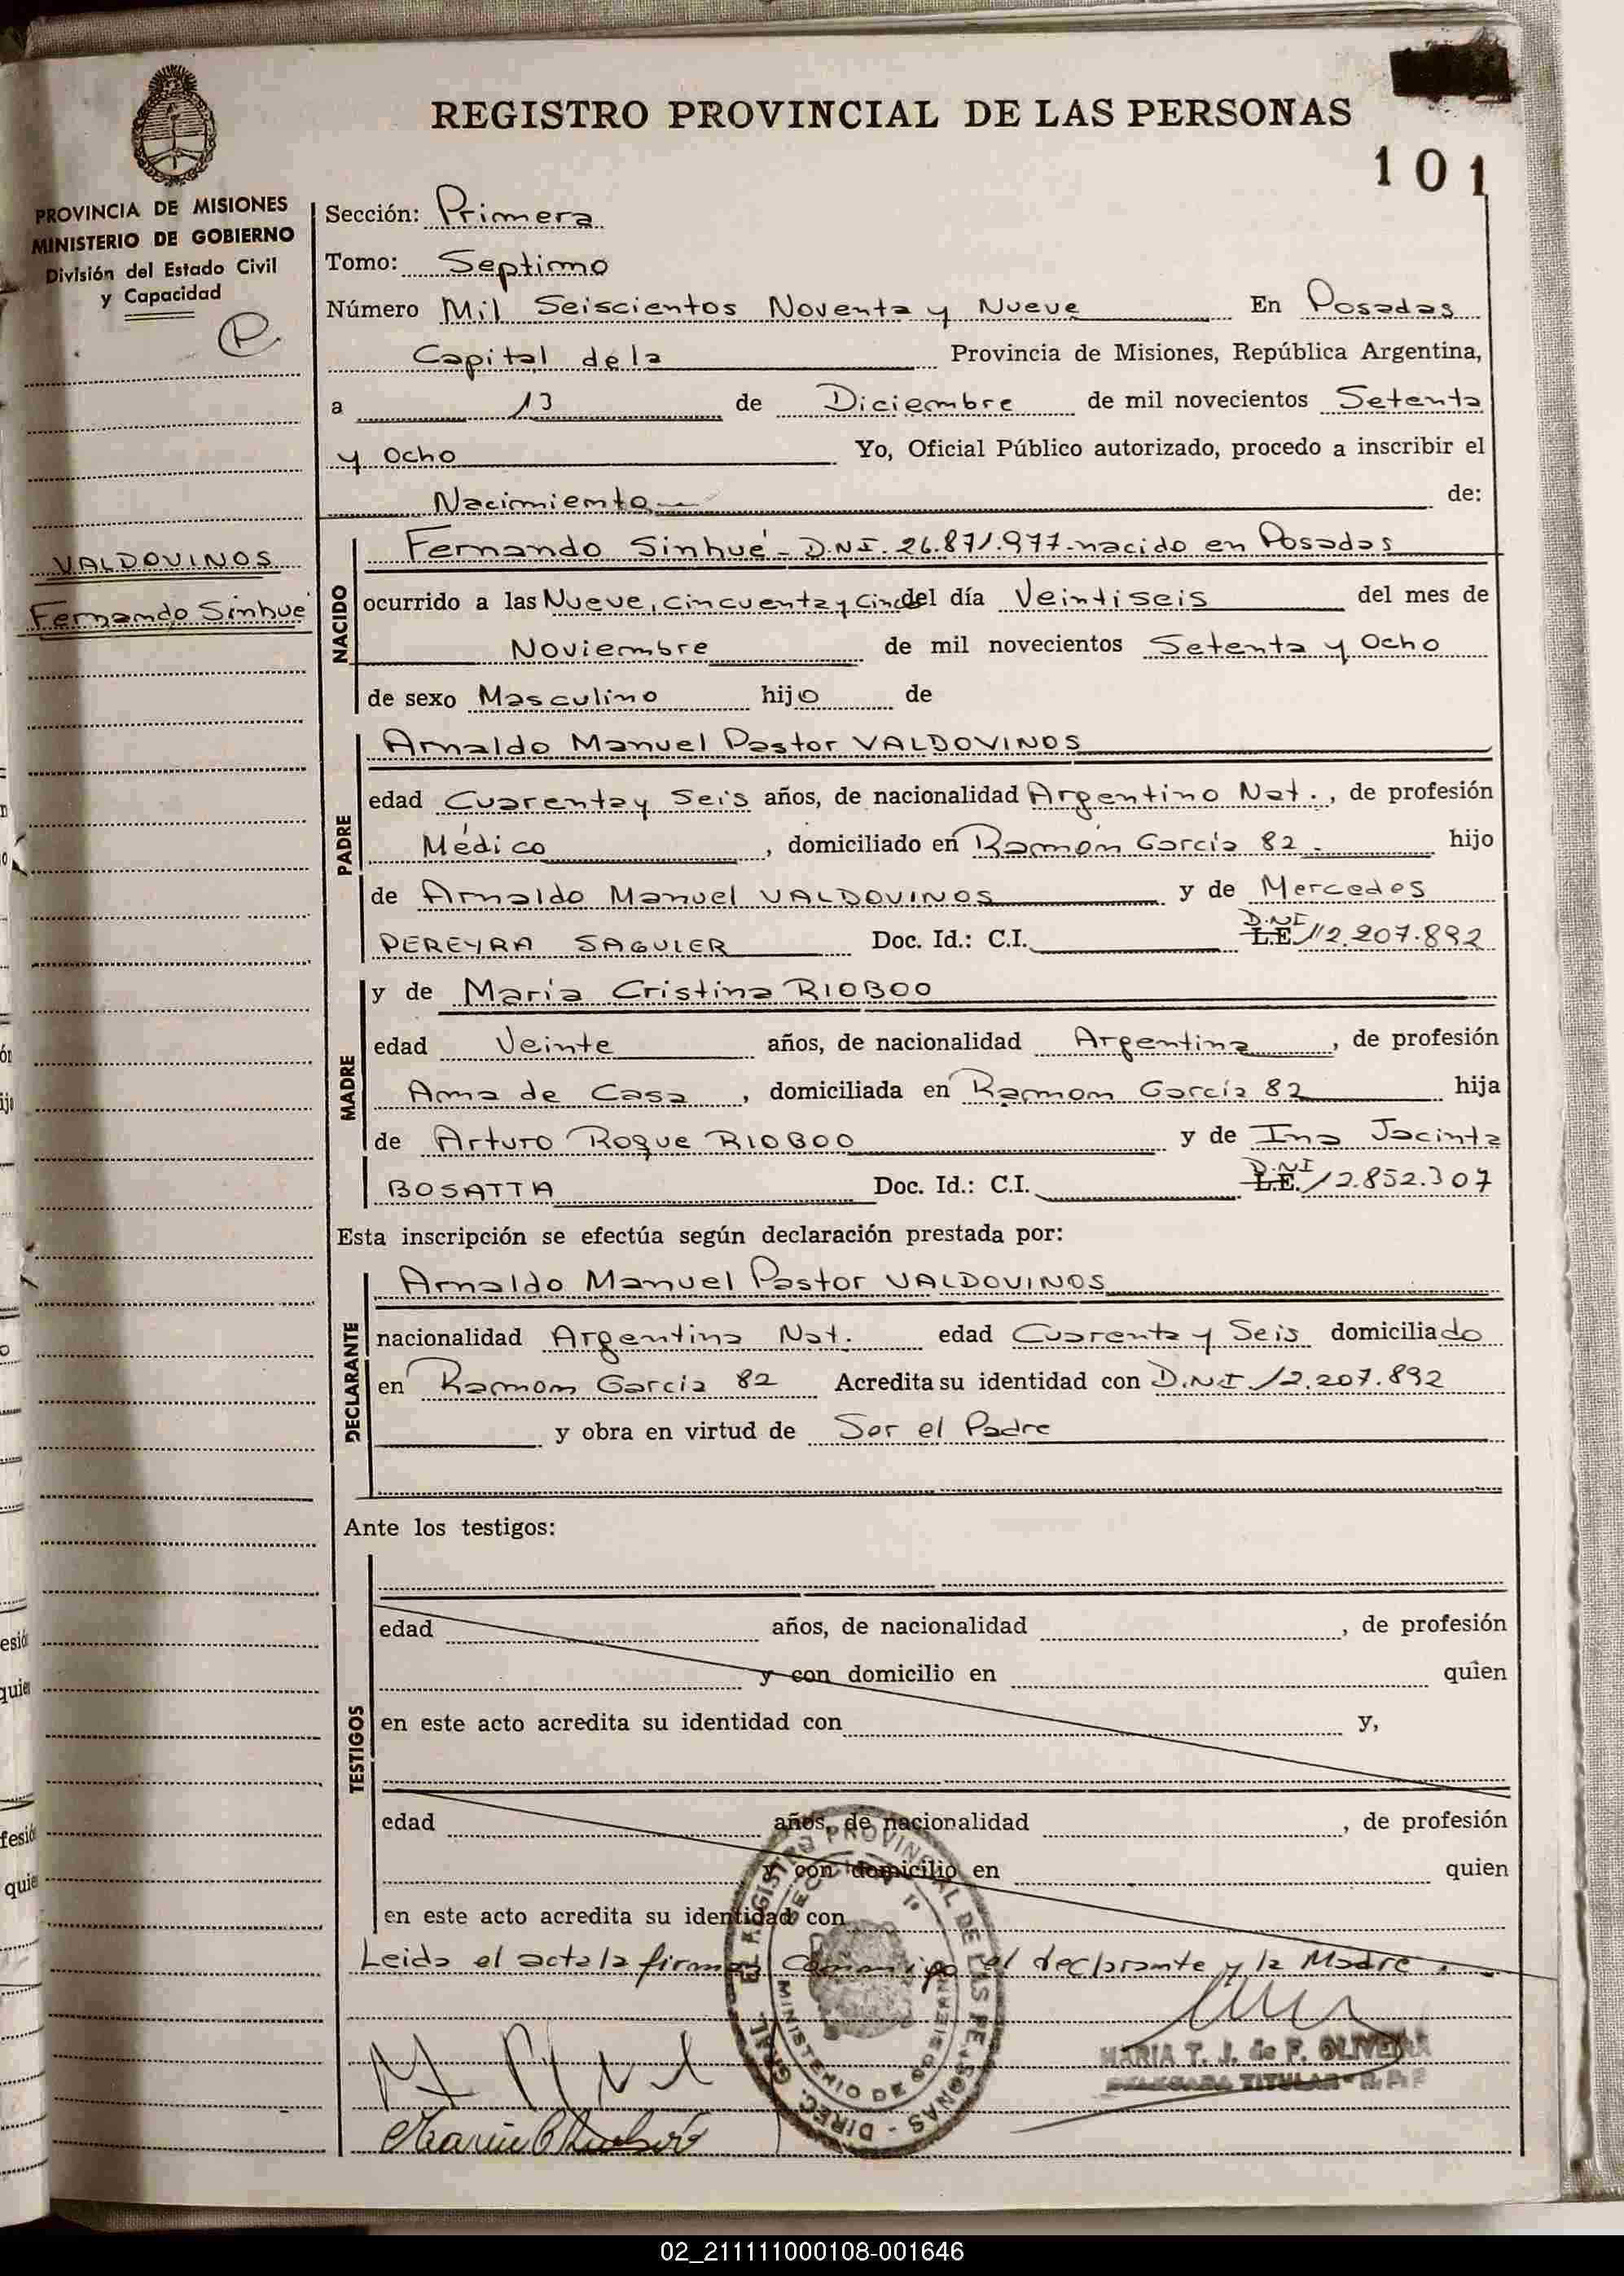 REGISTRO PROVINCIAL DE LAS PERSONAS
101
PROVINCIA DE MISIONES
MINISTERIO DE GOBIERNO
División del Estado Civil
y Capacidad
Sección: Primera
Tomo: Septimo
Número Mil Seiscientos Noventa y Nueve En Posadas
Capital de la Provincia de Misiones, República Argentina,
a 13 de Diciembre de mil novecientos Setenta
y Ocho Yo, Oficial Público autorizado, procedo a inscribir el
Nacimiento de:
VALDOVINOS
Fernando Sinhué
NACIDO
Fernando Sinhué - D.N.I. 26.871.977 - nacido en Posadas
ocurrido a las Nueve, cincuenta y Cinco del día Veintiseis del mes de
Noviembre de mil novecientos Setenta y Ocho
de sexo Masculino hijo de
PADRE
Arnaldo Manuel Pastor VALDOVINOS
edad Cuarenta y Seis años, de nacionalidad Argentino Nat., de profesión
Médico, domiciliado en Ramón García 82 - hijo
de Arnaldo Manuel VALDOVINOS y de Mercedes
PEREYRA SAGUIER Doc. Id.: C.I. L.E. D.N.I 12.207.892
MADRE
y de María Cristina RIOBOO
edad Veinte años, de nacionalidad Argentina, de profesión
Ama de Casa, domiciliada en Ramon García 82 hija
de Arturo Roque RIOBOO y de Ina Jacinta
BOSATTA Doc. Id.: C.I. L.E. D.N.I 12.852.307
Esta inscripción se efectúa según declaración prestada por:
DECLARANTE
Arnaldo Manuel Pastor VALDOVINOS
nacionalidad Argentina Nat. edad Cuarenta y Seis domiciliado
en Ramon Garcia 82 Acredita su identidad con D.N.I 12.207.892
y obra en virtud de Ser el Padre
Ante los testigos:
TESTIGOS
edad años, de nacionalidad , de profesión
y con domicilio en quien
en este acto acredita su identidad con y,
edad años, de nacionalidad , de profesión
y con domicilio en quien
en este acto acredita su identidad con
Leida el acta la firman conmigo el declarante y la Madre.
DIREC. GRAL. DEL REGISTRO PROVINCIAL DE LAS PERSONAS
MINISTERIO DE GOBIERNO
MARIA T. J. de F. OLIVEIRA
TITULAR
02_211111000108-001646